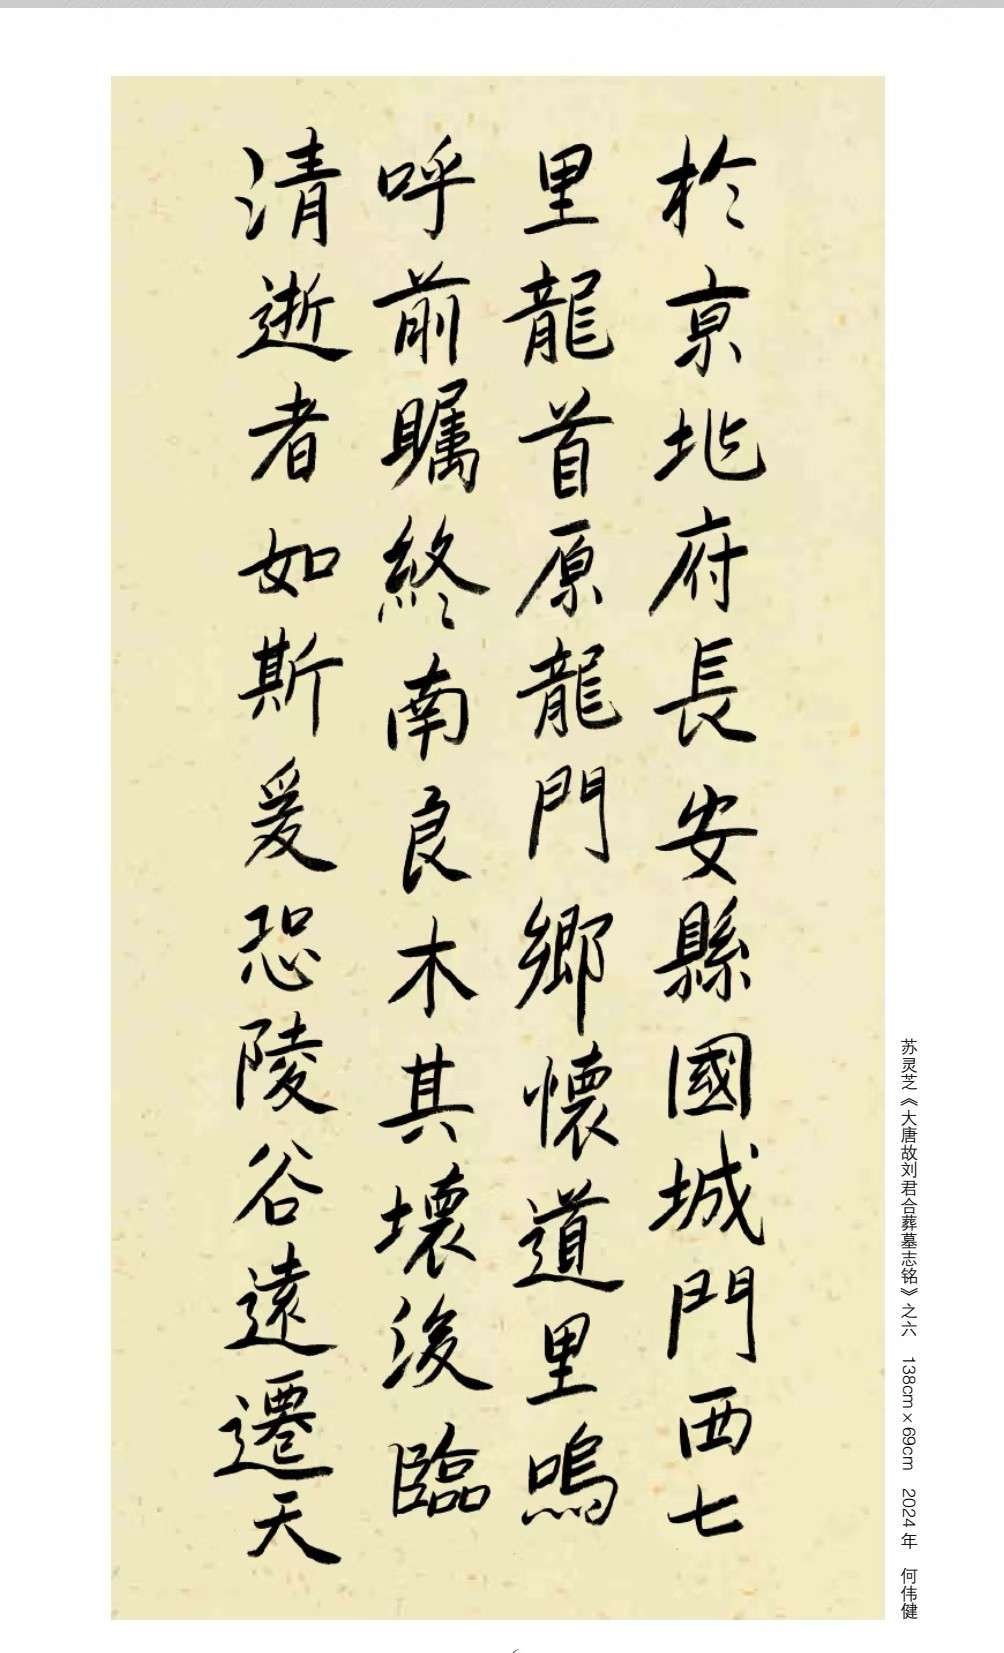 於京兆府長安縣國城門西七
里龍首原龍門鄉懷道里嗚
呼前矚終南良木其壞後臨
清逝者如斯爰恐陵谷遠遷天
苏灵芝《大唐故刘君合葬墓志铭》之六 138cm×69cm 2024年 何伟健